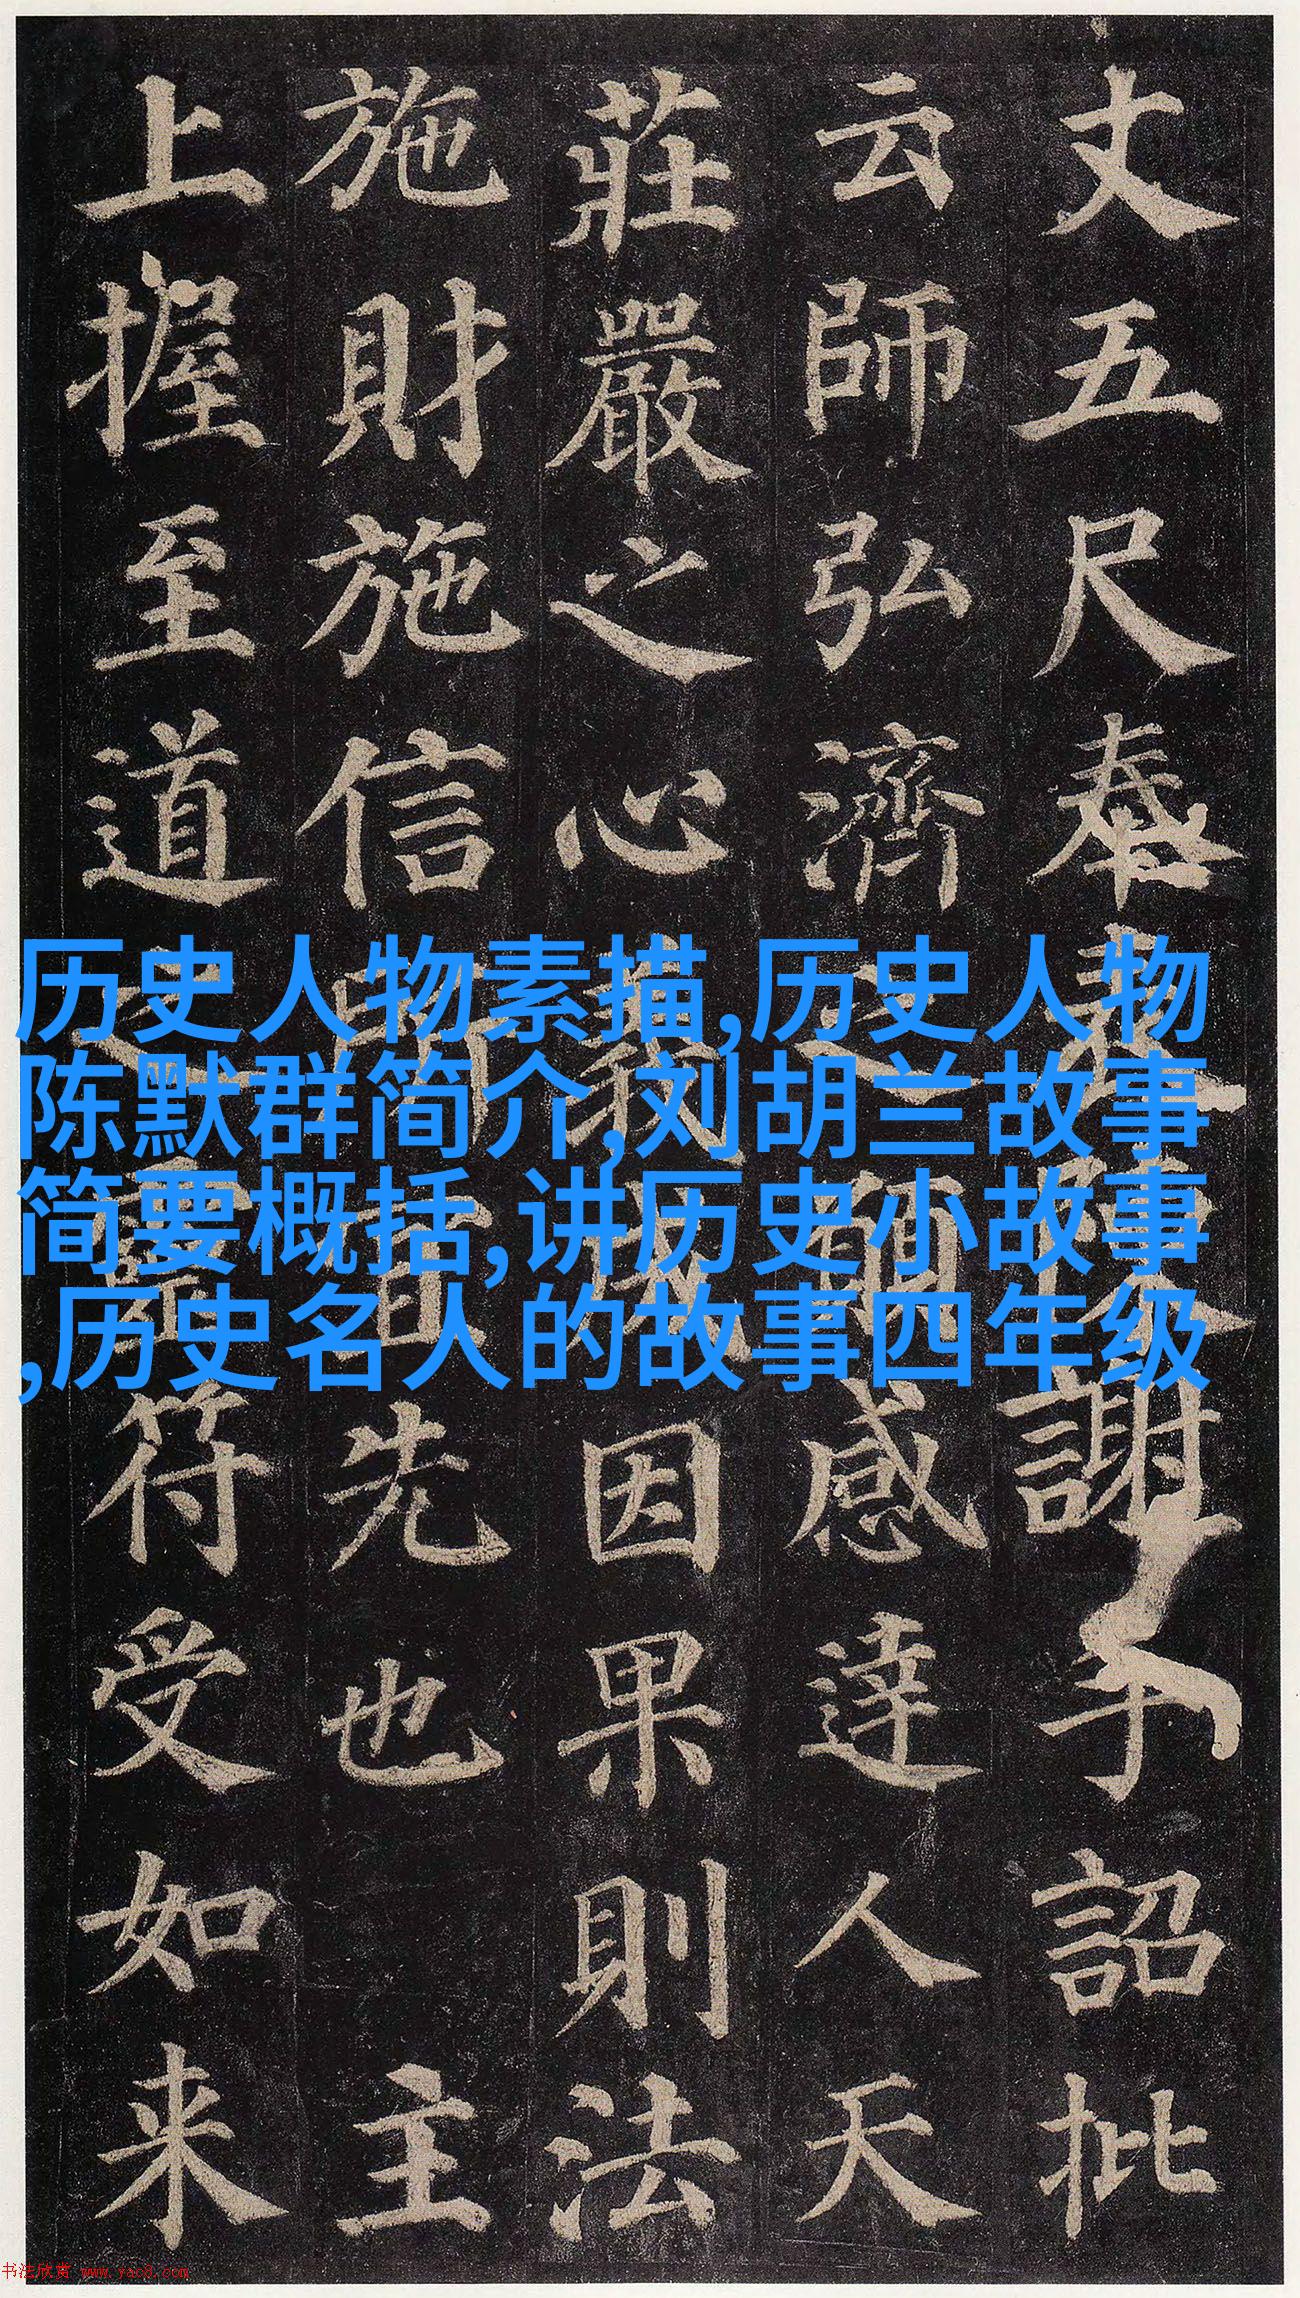 丈五尺奉謝手詔批
云師弘濟感達人天
莊嚴之心因果則法
施財施信先也主
上握至道符受如来
历史人物素描,历史人物
陈默群简介,刘胡兰故事
简要概括,讲历史小故事
,历史名人的故事四年级
书法欣赏 www.yac8.com